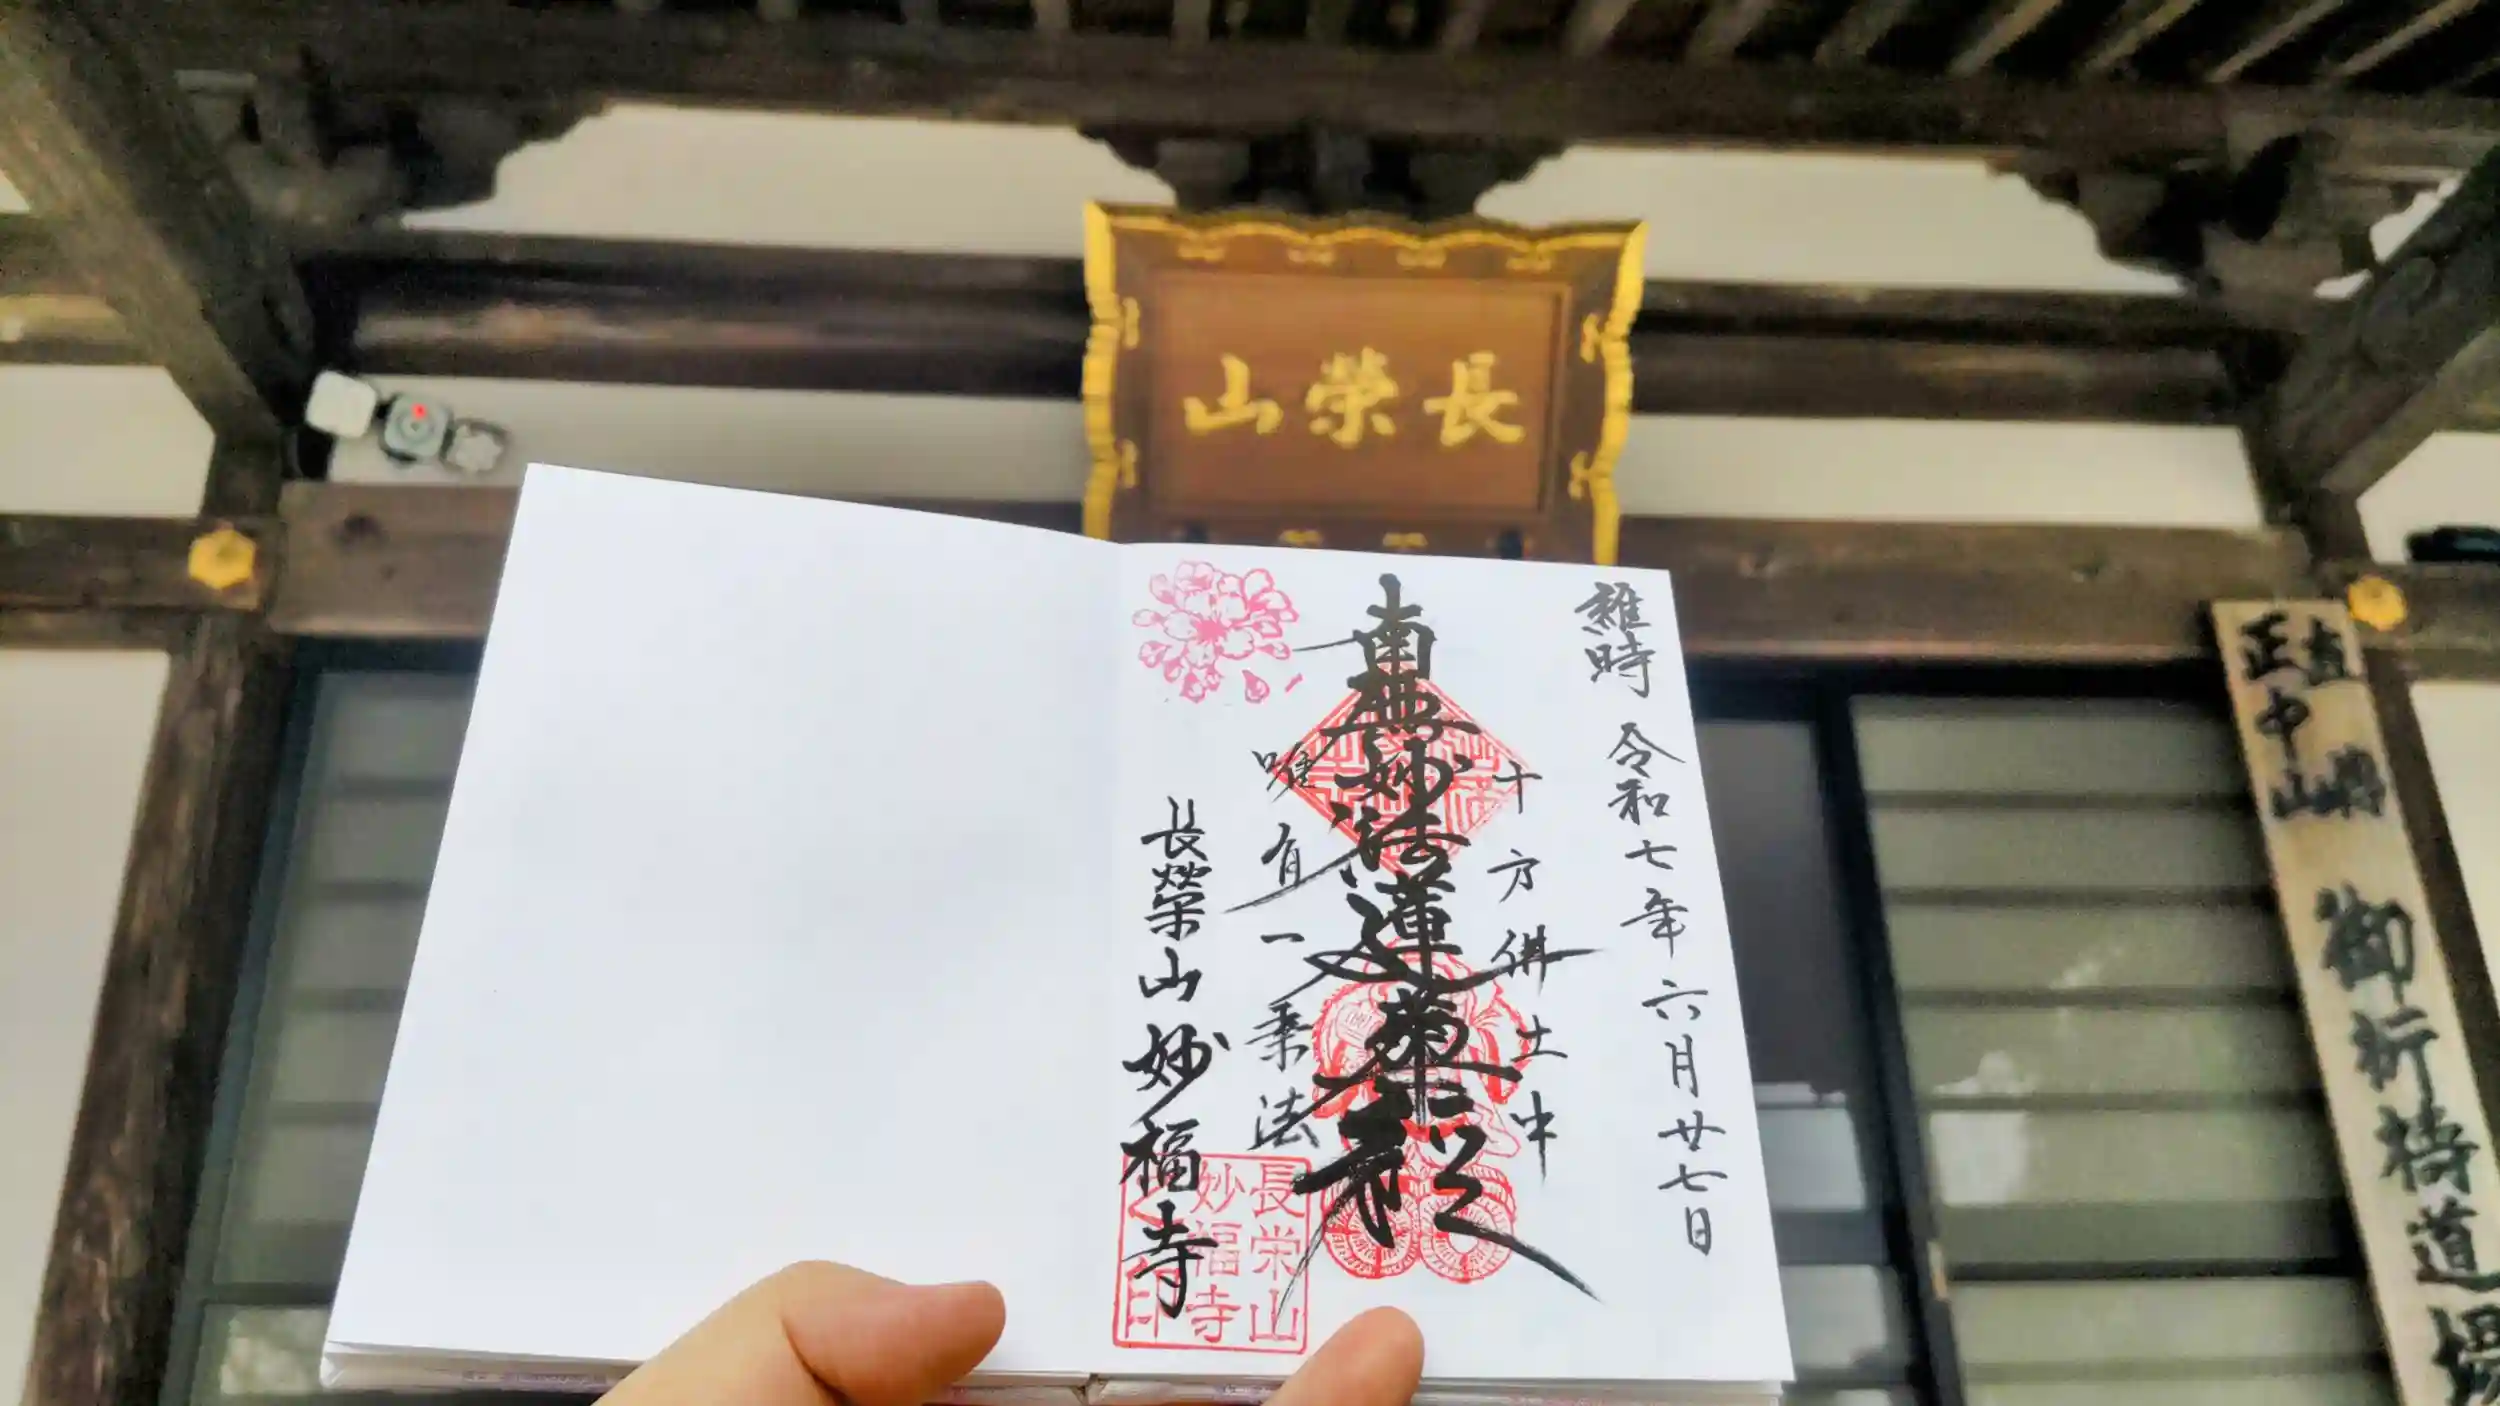 長榮山
維時 令和七年六月廿七日
十方佛土中
南無妙法蓮華経
唯有一乗法
長榮山妙福寺
長栄山
妙福寺
之印
正中山
御祈祷道場